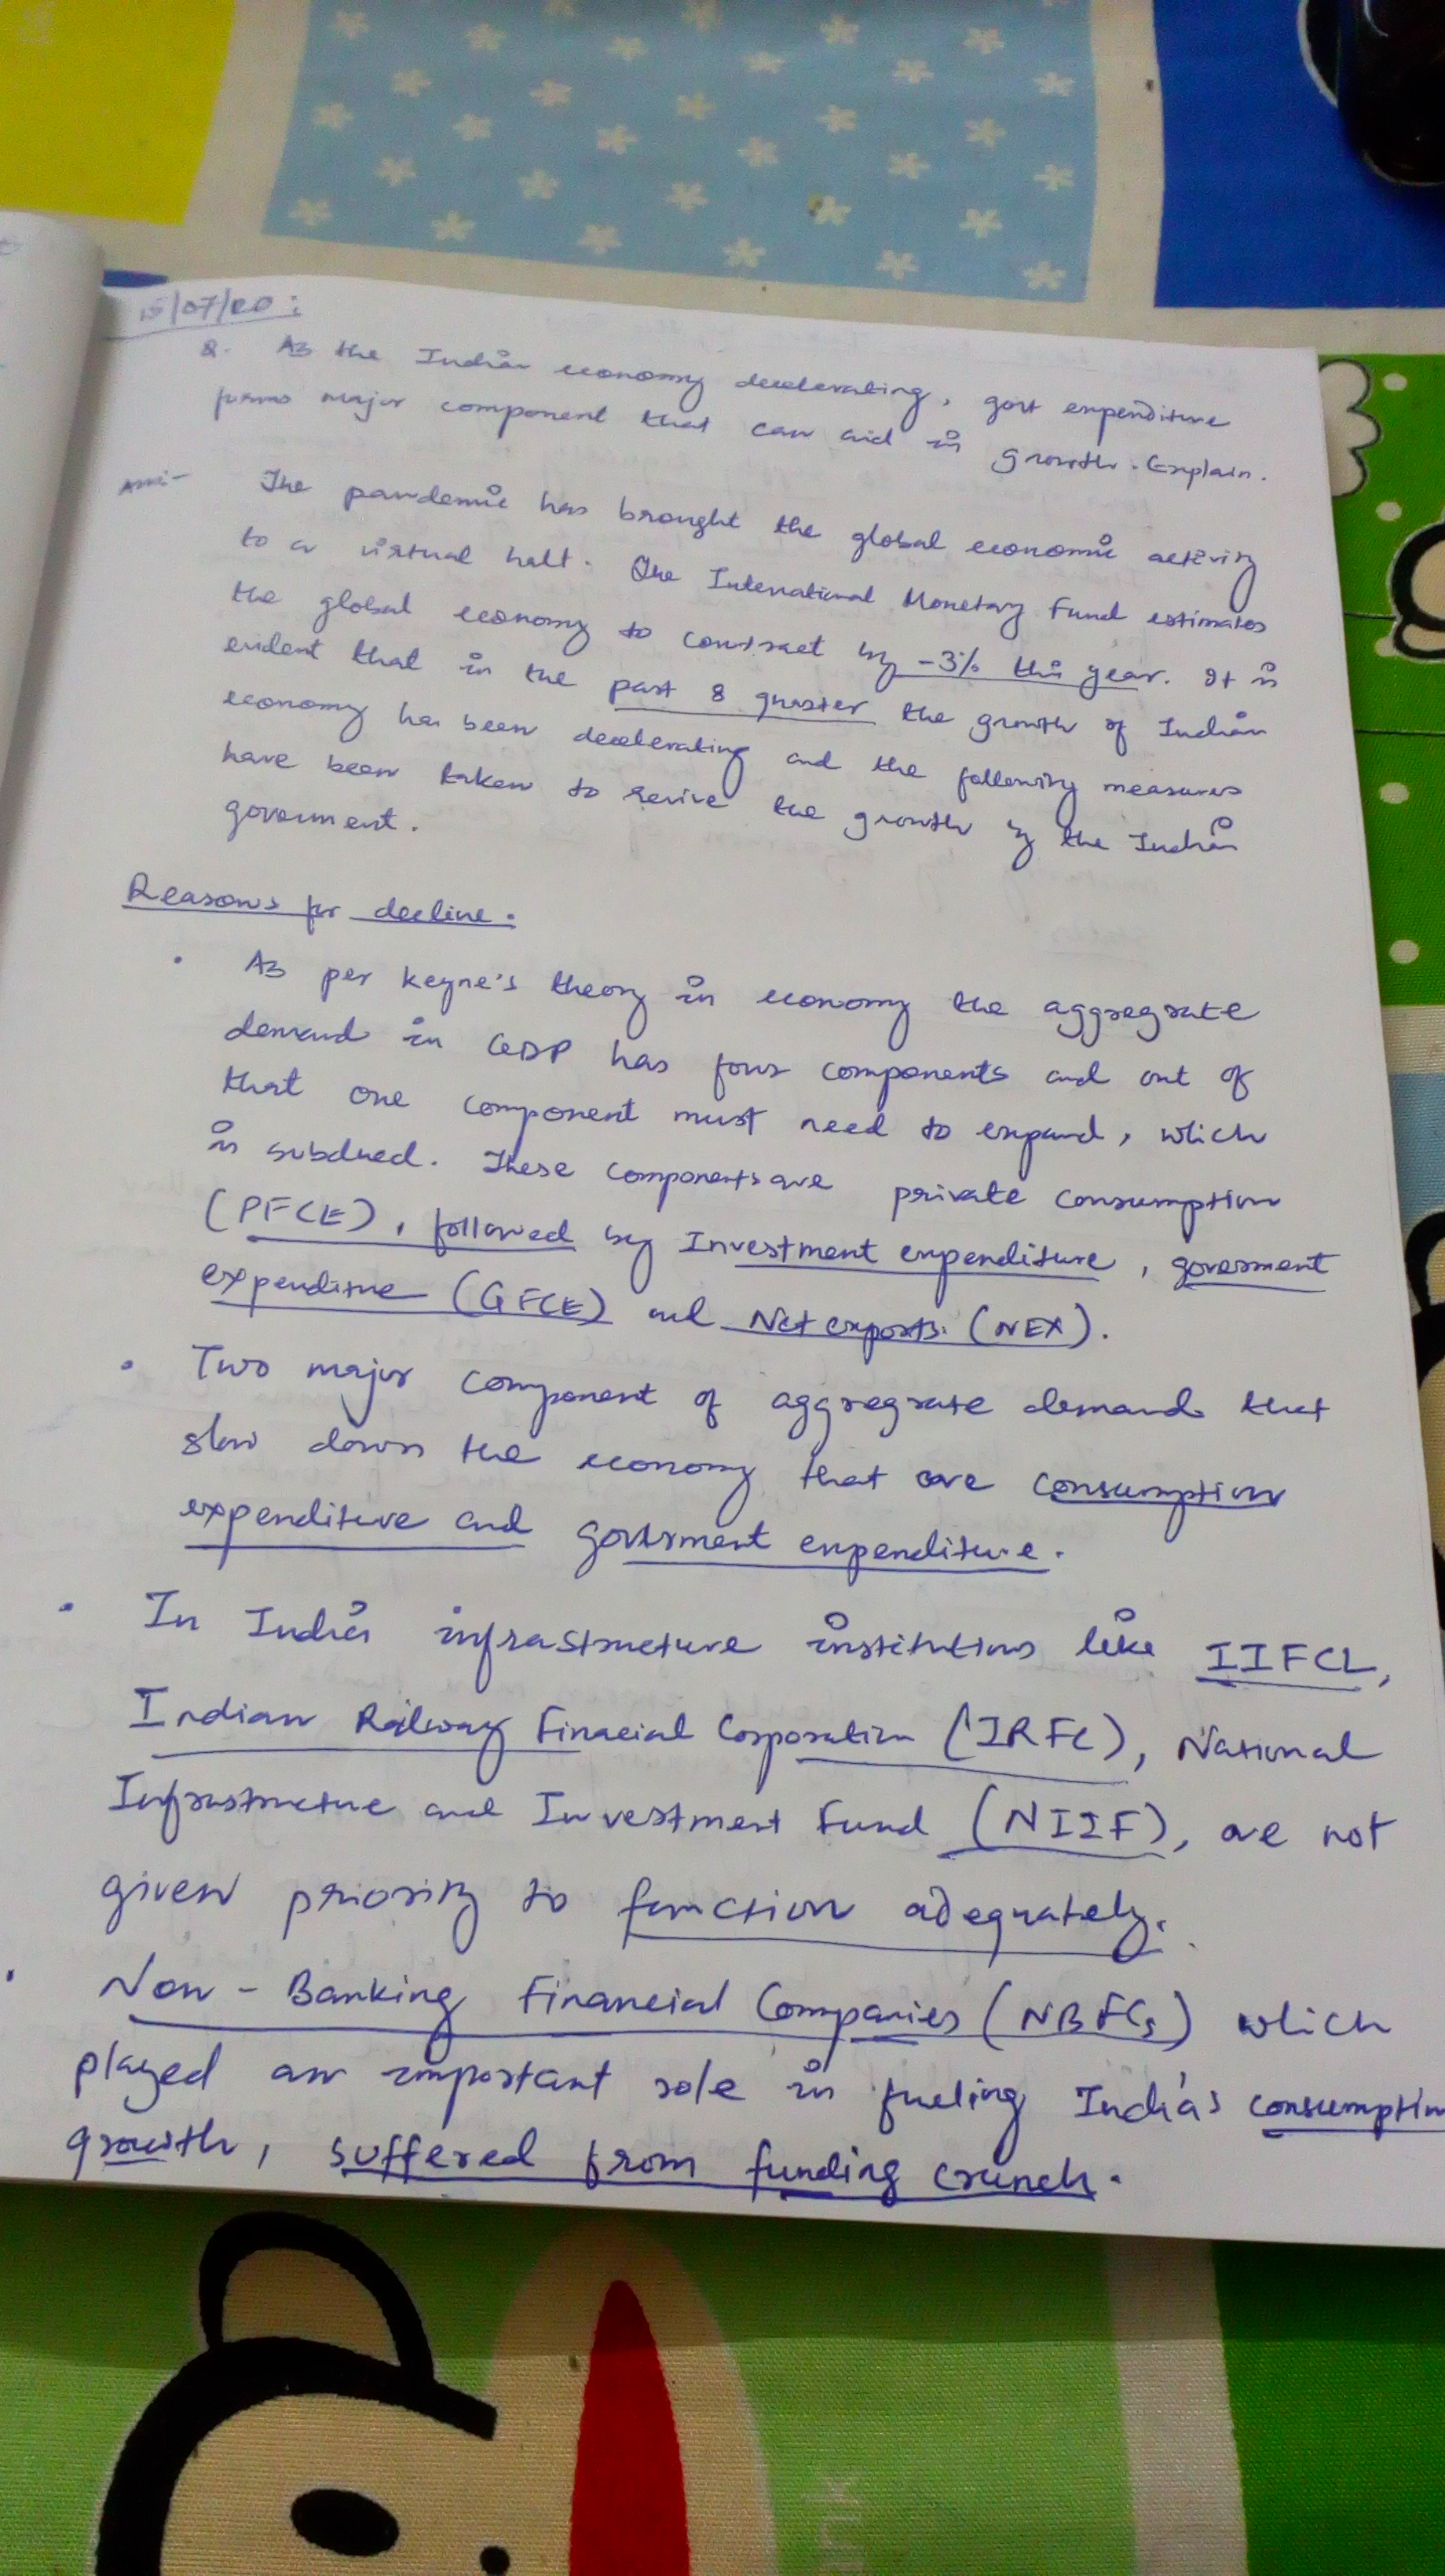 15/07/20:
Q. As the Indian economy decelerating, govt expenditure
forms major component that can aid in growth. Explain.
Ans:- The pandemic has brought the global economic activity
to a virtual halt. The International Monetary Fund estimates
the global economy to contract by -3% this year. It is
evident that in the past 8 quarter the growth of Indian
economy has been decelerating and the following measures
have been taken to revive the growth by the Indian
goverment.
Reasons for decline.
• As per Keyne's theory in economy the aggregrate
demand in GDP has four components and out of
that one component must need to expand, which
is subdued. These components are private consumption
(PFCE), followed by Investment expenditure, goverment
expenditure (GFCE) and Net exports. (NEX).
• Two major component of aggregrate demand that
slow down the economy that are consumption
expenditure and goverment expenditure.
• In India infrastructure institutions like IIFCL,
Indian Railway Finacial Corporation (IRFC), National
Infrastructure and Investment Fund (NIIF), are not
given priority to function adequately.
• Non-Banking Financial Companies (NBFCs) which
played an important role in fueling India's consumption
growth, suffered from funding crunch.